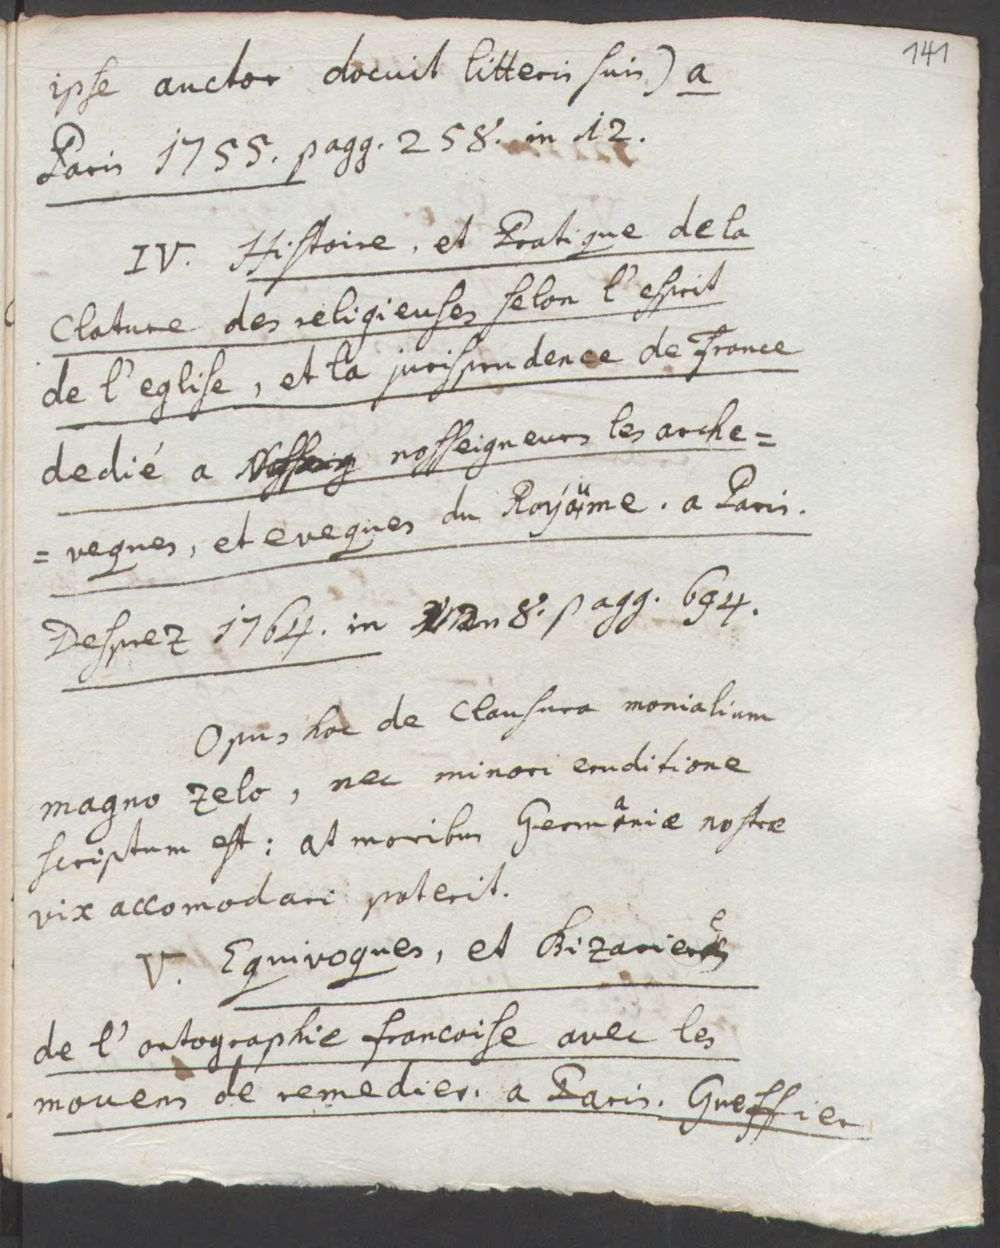 141
ipse auctor docuit litteris suis) a
Paris 1755. pagg. 258. in 12.
IV. Histoire, et Pratique de la
Cloture des religieuses selon l'esprit
de l'eglise, et la jurisprudence de France
dedié a nosseigneurs les arche=
=veques, et eveques du Royäume. a Paris.
Desprez 1764. in 8. pagg. 694.
Opus hoc de Clausura monialium
magno zelo, nec minori eruditione
scriptum est: at moribus Germaniæ nostræ
vix accomodari poterit.
V. Equivoques, et Bizaries
de l'ortographie francoise avec les
mouens de remedier. a Paris. Gueffier